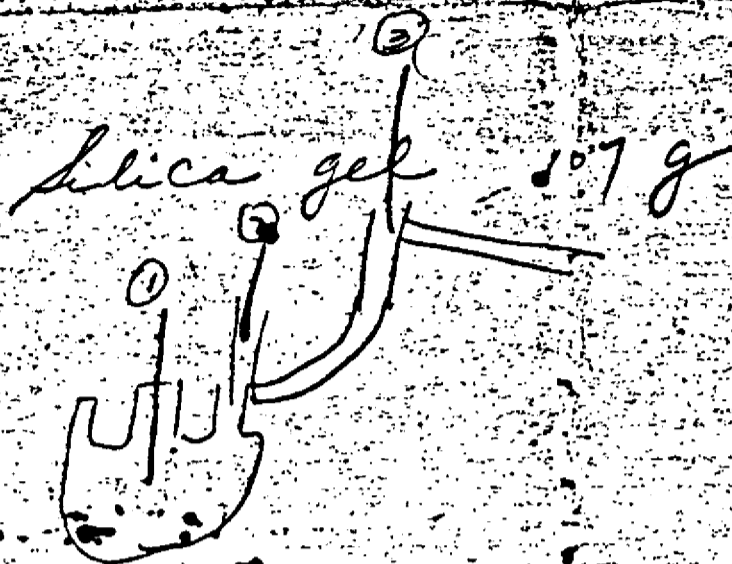 ③
Silica gel 107 g
②
①